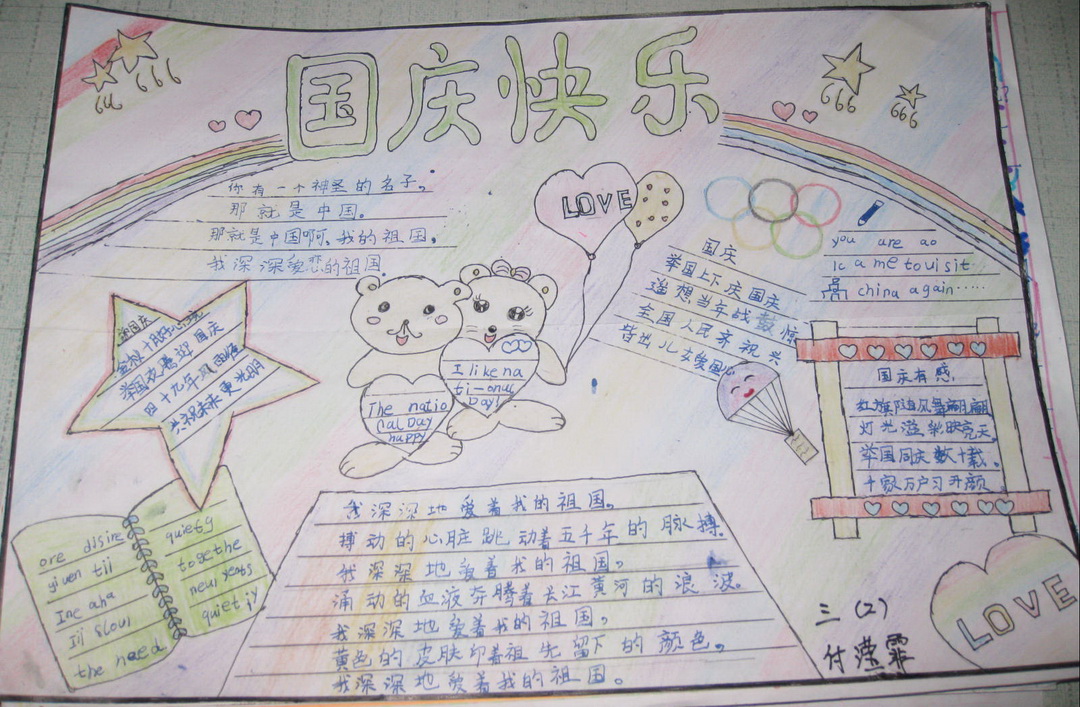 国庆快乐
666
666
666
666
你有一个神圣的名子。
那就是中国。
那就是中国啊，我的祖国。
我深深爱恋的祖国.
LOVE
国庆
举国上下庆国庆
遥想当年战鼓惊
全国人民齐祝兴
皆当儿女爱国
you are ao
ic a me to uisit
china again……
迎国庆
举国欢腾迎国庆
四十九年风雨
共祝未来更光明
I like na
ti-onul
Day!
The natio
Cal Day
happy
国庆有感
红旗随风舞翩翩
灯光溢彩映亮天。
举国同庆数十载。
千家万户习开颜
ore ddsire
yiuen tii
Inc aha
Iii slowi
the naed
quiety
togethe
neui yeats
quietjy
我深深地爱着我的祖国。
搏动的心脏跳动着五千年的脉搏.
我深深地爱着我的祖国。
涌动的血液奔腾着长江黄河的浪波。
我深深地爱着我的祖国。
黄色的皮肤印着祖先留下的颜色。
我深深地爱着我的祖国。
三(2)
付滢霏
LOVE